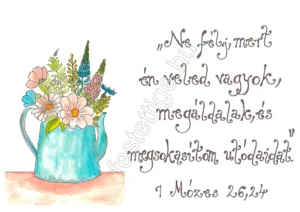 „Ne félj, mert
én veled vagyok,
megáldalak, és
megsokasítom utódaidat."
1 Mózes 26,24